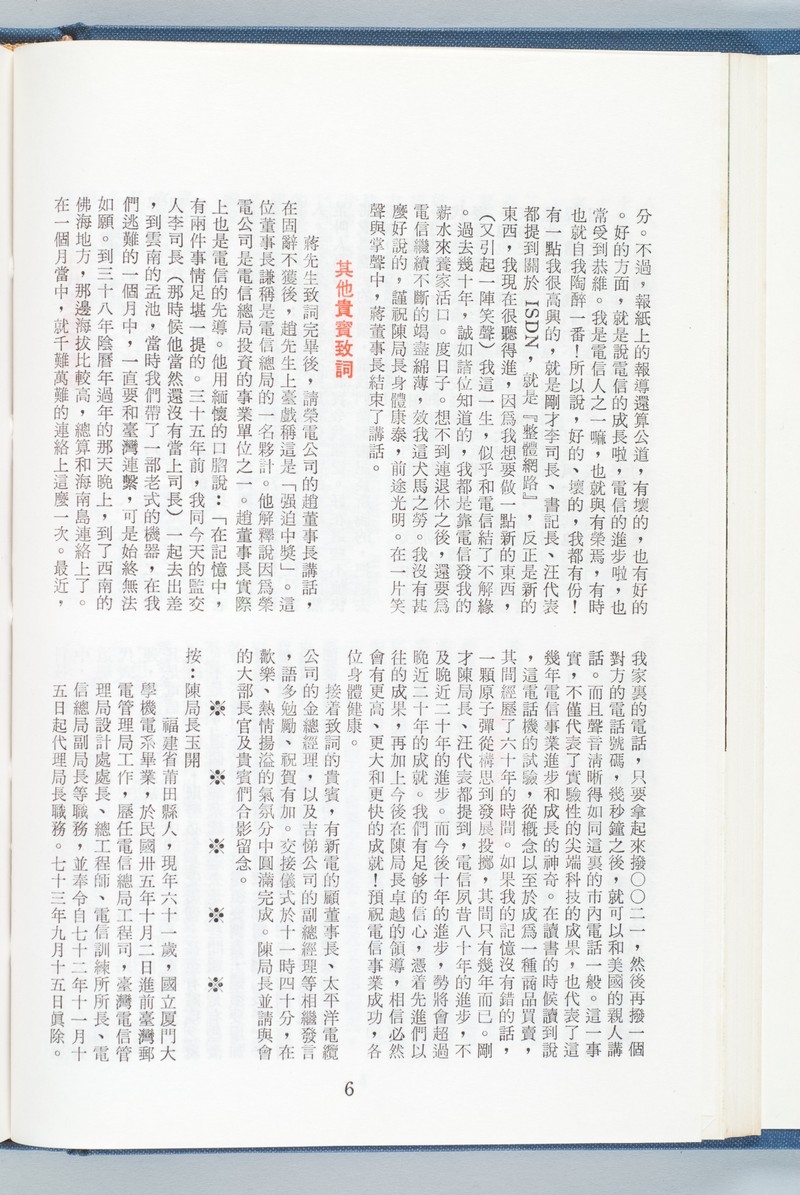 分。不過，報紙上的報導還算公道，有壞的，也有好的
。好的方面，就是說電信的成長啦，電信的進步啦，也
常受到恭維。我是電信人之一嘛，也就與有榮焉，有時
也就自我陶醉一番！所以說，好的、壞的，我都有份！
有一點我很高興的，就是剛才李司長、書記長、汪代表
都提到關於 ISDN，就是『整體網路』，反正是新的
東西，我現在很聽得進，因爲我想要做一點新的東西，
（又引起一陣笑聲）我這一生，似乎和電信結了不解緣
。過去幾十年，誠如諸位知道的，我都是靠電信發我的
薪水來養家活口。度日子。想不到連退休之後，還要爲
電信繼續不斷的竭盡綿薄，效我這犬馬之勞。我沒有甚
麼好說的，謹祝陳局長身體康泰，前途光明。在一片笑
聲與掌聲中，蔣董事長結束了講話。
其他貴賓致詞
蔣先生致詞完畢後，請榮電公司的趙董事長講話，
在固辭不獲後，趙先生上臺戲稱這是「强迫中獎」。這
位董事長謙稱是電信總局的一名夥計。他解釋說因爲榮
電公司是電信總局投資的事業單位之一。趙董事長實際
上也是電信的先導。他用緬懷的口脗說：「在記憶中，
有兩件事情足堪一提的。三十五年前，我同今天的監交
人李司長（那時候他當然還沒有當上司長）一起去出差
，到雲南的孟池，當時我們帶了一部老式的機器，在我
們逃難的一個月中，一直要和臺灣連繫，可是始終無法
如願。到三十八年陰曆年過年的那天晚上，到了西南的
佛海地方，那邊海拔比較高，總算和海南島連絡上了。
在一個月當中，就千難萬難的連絡上這麼一次。最近，
我家裏的電話，只要拿起來撥〇〇二一，然後再撥一個
對方的電話號碼，幾秒鐘之後，就可以和美國的親人講
話。而且聲音清晰得如同這裏的市內電話一般。這一事
實，不僅代表了實驗性的尖端科技的成果，也代表了這
幾年電信事業進步和成長的神奇。在讀書的時候讀到說
，這電話機的試驗，從概念以至於成爲一種商品買賣，
其間經歷了六十年的時間。如果我的記憶沒有錯的話，
一顆原子彈從構思到發展投擲，其間只有幾年而已。剛
才陳局長、汪代表都提到，電信夙昔八十年的進步，不
及晚近二十年的進步。而今後十年的進步，勢將會超過
晚近二十年的成就。我們有足够的信心，憑着先進們以
往的成果，再加上今後在陳局長卓越的領導，相信必然
會有更高、更大和更快的成就！預祝電信事業成功，各
位身體健康。
接着致詞的貴賓，有新電的顧董事長、太平洋電纜
公司的金總經理，以及吉悌公司的副總經理等相繼發言
，語多勉勵、祝賀有加。交接儀式於十一時四十分，在
歡樂、熱情揚溢的氣氛分中圓滿完成。陳局長並請與會
的大部長官及貴賓們合影留念。
※　※　※　※　※
按：陳局長玉開
福建省莆田縣人，現年六十一歲，國立厦門大
學機電系畢業，於民國卅五年十月二日進前臺灣郵
電管理局工作，歷任電信總局工程司，臺灣電信管
理局設計處處長、總工程師、電信訓練所所長、電
信總局副局長等職務，並奉令自七十二年十一月十
五日起代理局長職務。七十三年九月十五日眞除。
6